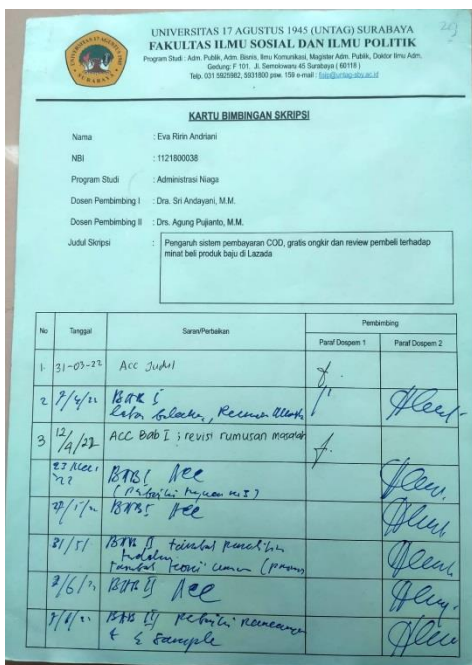 UNIVERSITAS 17 AGUSTUS 1945 (UNTAG) SURABAYA
FAKULTAS ILMU SOSIAL DAN ILMU POLITIK
Program Studi : Adm. Publik, Adm. Bisnis, Ilmu Komunikasi, Magister Adm. Publik, Doktor Ilmu Adm.
Gedung: F 101. Jl. Semolowaru 45 Surabaya ( 60118 )
Telp. 031 5925982, 5931800 psw. 159 e-mail : fisip@untag-sby.ac.id
KARTU BIMBINGAN SKRIPSI
Nama : Eva Ririn Andriani
NBI : 1121800038
Program Studi : Administrasi Niaga
Dosen Pembimbing I : Dra. Sri Andayani, M.M.
Dosen Pembimbing II : Drs. Agung Pujianto, M.M.
Judul Skripsi : Pengaruh sistem pembayaran COD, gratis ongkir dan review pembeli terhadap
minat beli produk baju di Lazada
No Tanggal Saran/Perbaikan Pembimbing
Paraf Dospem 1 Paraf Dospem 2
1. 31-03-22 Acc Judul
2 BAB I
latar belakang,
3 12/4/22 ACC Bab I ; revisi rumusan masalah
BAB I Acc
BAB I Acc
31/5/ BAB II
BAB II Acc
BAB III
& Sample